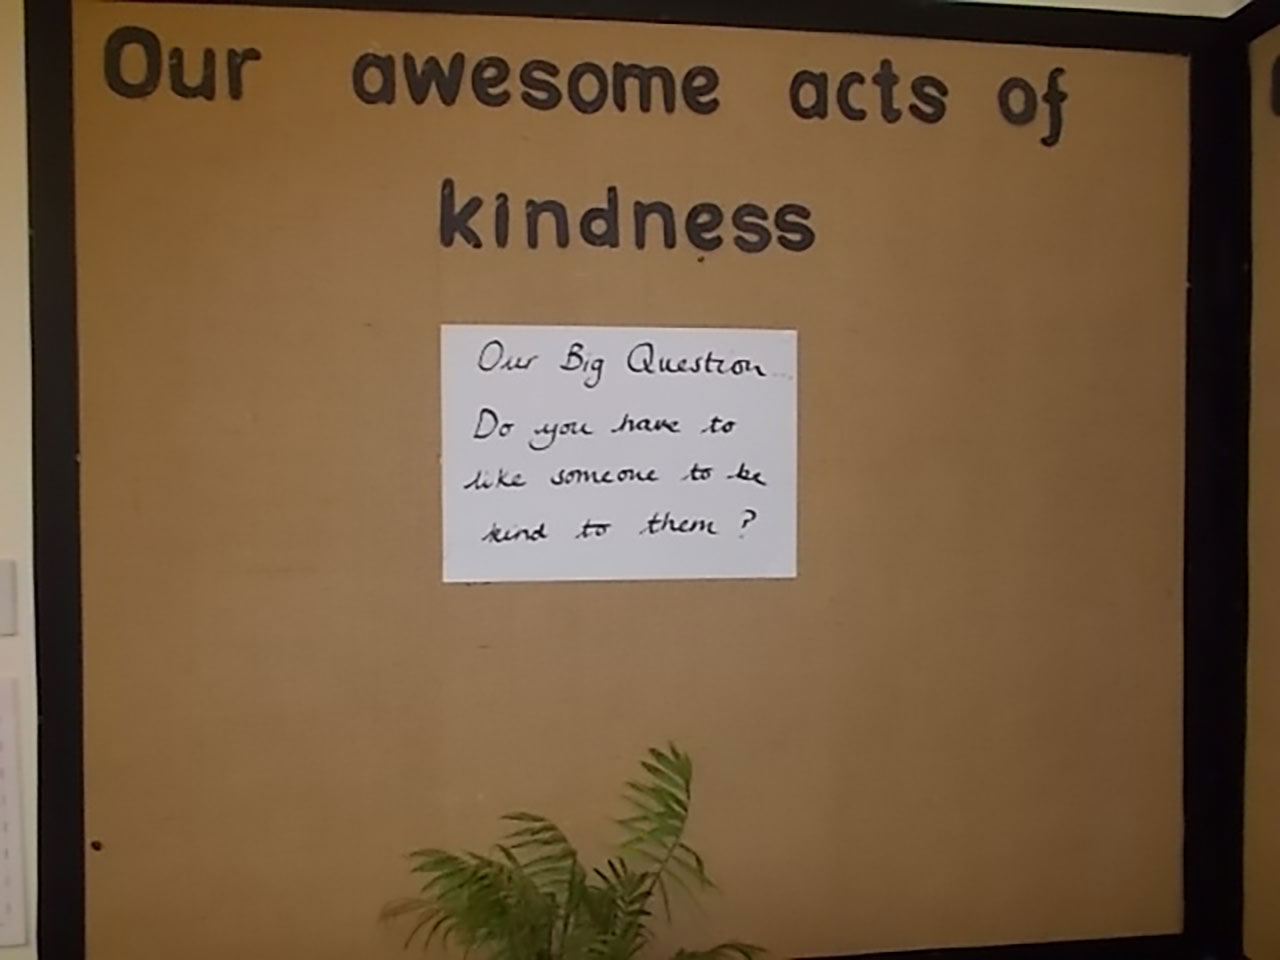 Our awesome acts of
kindness
Our Big Question...
Do you have to
like someone to be
kind to them ?